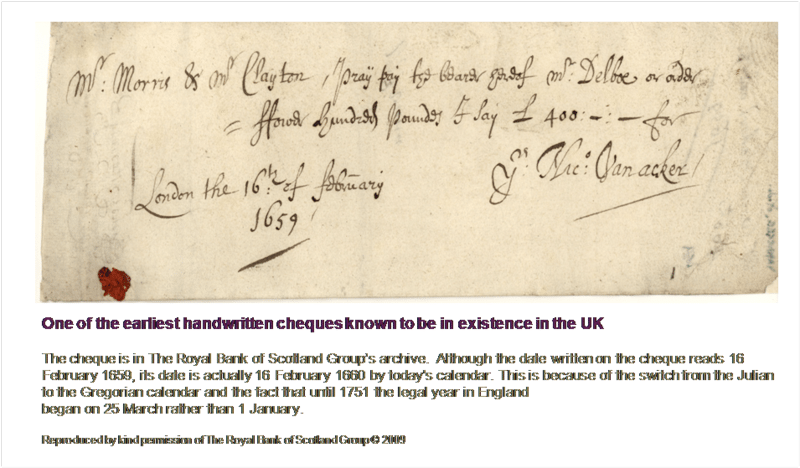 Mr: Morris & Mr Clayton / Pray pay the bearer hereof Mr: Delboe or order
= ffower hundred Pounds I say £ 400:–:– for
Yrs: Nico: Vanacker /
London the 16th: of february
1659 /
One of the earliest handwritten cheques known to be in existence in the UK
The cheque is in The Royal Bank of Scotland Group's archive. Although the date written on the cheque reads 16
February 1659, its date is actually 16 February 1660 by today's calendar. This is because of the switch from the Julian
to the Gregorian calendar and the fact that until 1751 the legal year in England
began on 25 March rather than 1 January.
Reproduced by kind permission of The Royal Bank of Scotland Group © 2009